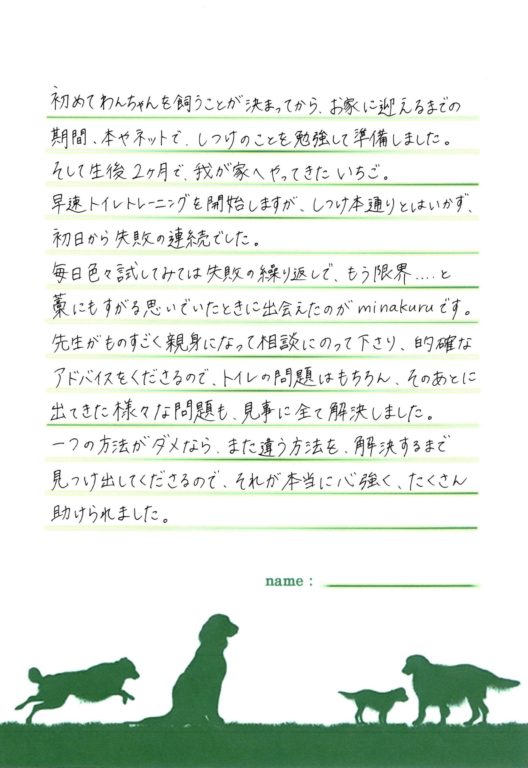 初めてわんちゃんを飼うことが決まってから、お家に迎えるまでの
期間、本やネットで、しつけのことを勉強して準備しました。
そして生後2ヶ月で、我が家へやってきたいちご。
早速トイレトレーニングを開始しますが、しつけ本通りとはいかず、
初日から失敗の連続でした。
毎日色々試してみては失敗の繰り返しで、もう限界....と
藁にもすがる思いでいたときに出会えたのがminakuruです。
先生がものすごく親身になって相談にのって下さり、的確な
アドバイスをくださるので、トイレの問題はもちろん、そのあとに
出てきた様々な問題も、見事に全て解決しました。
一つの方法がダメなら、また違う方法を、解決するまで
見つけ出してくださるので、それが本当に心強く、たくさん
助けられました。
name :